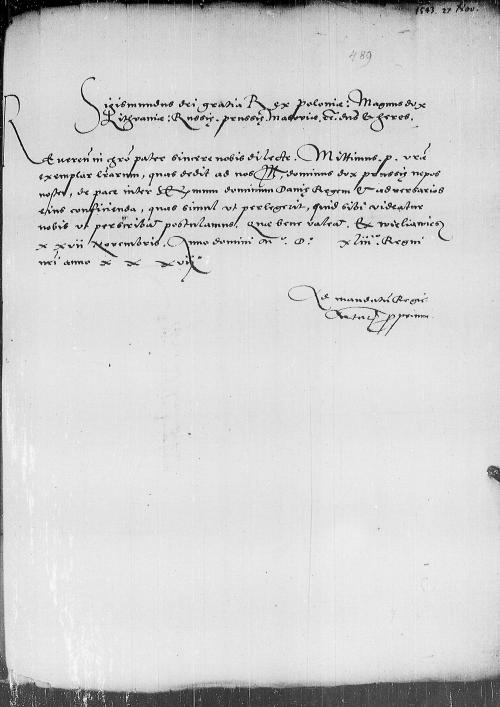 1543. 27 Nov.
489
Sigismundus dei gratia Rex polonie: Magnus dux
Lithvanie: Russię, prussię, Masovie, etc. dns & heres.
Reveren in chro pater sincere nobis dilecte. Mittimus p. vrae
exemplar lrarum, quas dedit ad nos Ill. dominus dux prussię nepos
noster, de pace inter Ser. mum dominum Danię Regem & adversarios
eius conficienda, quas simul ut perlegerit, quid sibi videatur
nobis ut perscribat postulamus. Que bene valeat. Ex
xxvii Novembris. Anno domini M.º D.º xliii.º Regni
nri anno xxxvii.º
Ad mandatu Regie